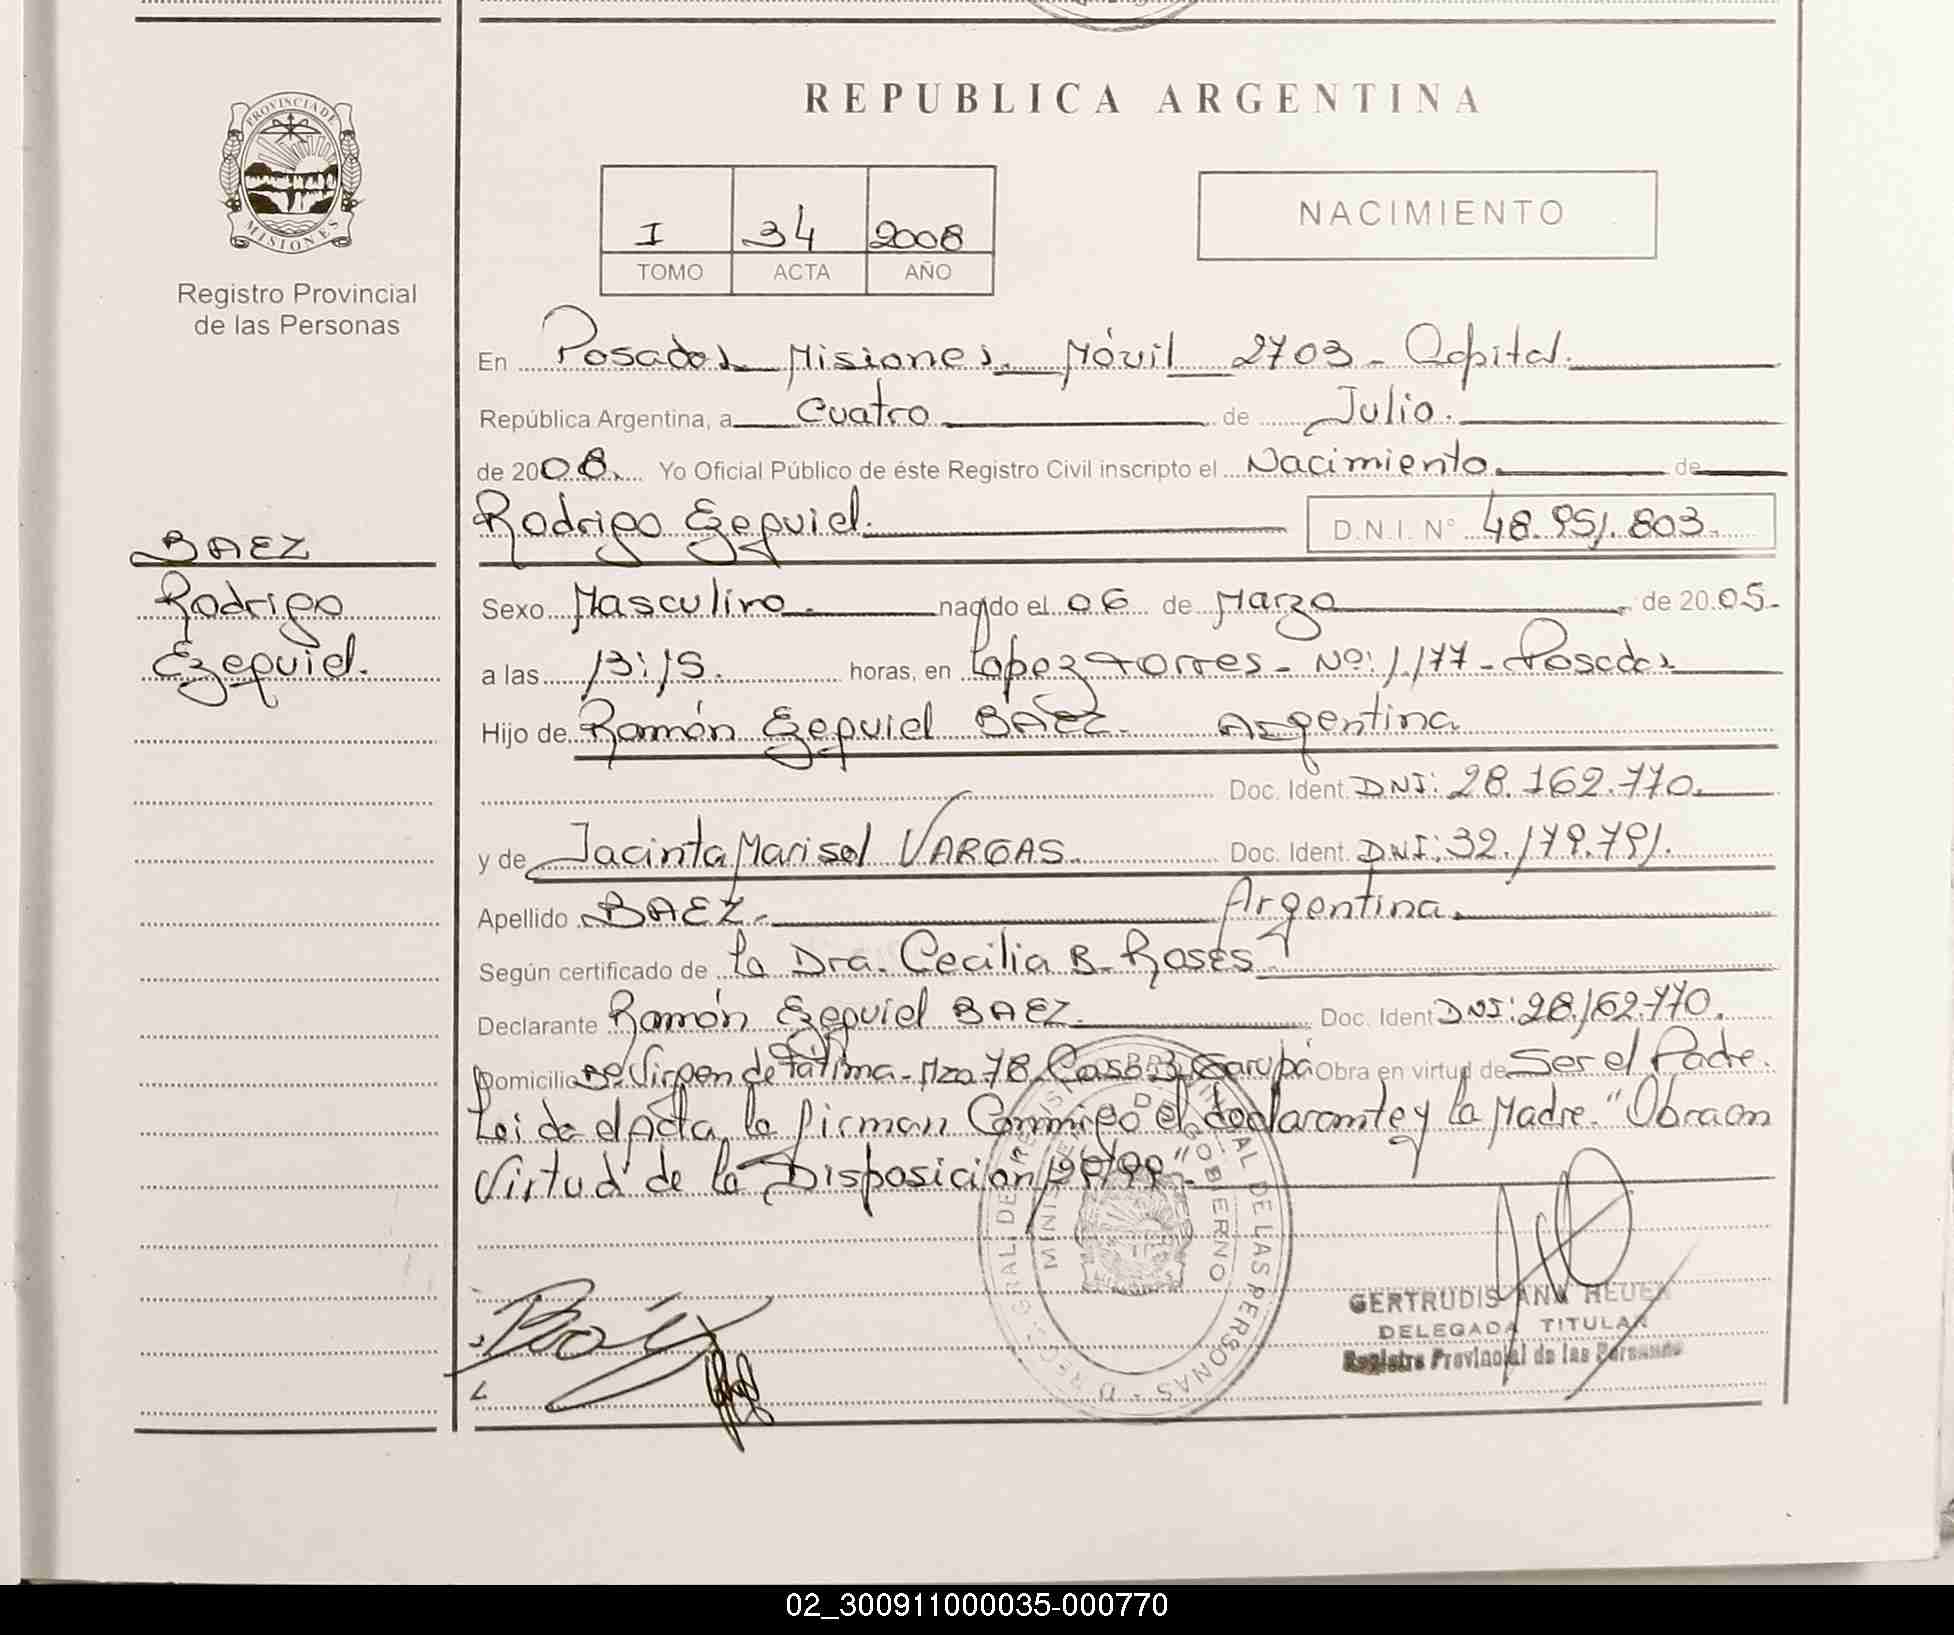 REPUBLICA ARGENTINA
PROVINCIA DE
MISIONES
Registro Provincial
de las Personas
I 34 2008
TOMO ACTA AÑO
NACIMIENTO
En Posadas Misiones. Móvil 2703 - Capital.
República Argentina, a Cuatro de Julio.
de 2008. Yo Oficial Público de éste Registro Civil inscripto el Nacimiento. de
Rodrigo Ezequiel. D.N.I. N° 48.951.803.
BAEZ
Rodrigo
Ezequiel.
Sexo Masculino. nacido el 06 de Marzo de 2005.
a las 13:15. horas, en Lopez Torres - Nº: 1.177 - Posadas
Hijo de Ramón Ezequiel BAEZ. Argentina
Doc. Ident. DNI: 28.162.770.
y de Jacinta Marisol VARGAS. Doc. Ident. DNI: 32.179.791.
Apellido BAEZ. Argentina.
Según certificado de la Dra. Cecilia B. Roses
Declarante Ramón Ezequiel BAEZ. Doc. Ident DNI: 28.162.770.
Domicilio Bº Virgen de Fátima - Mza 78 Casa 3 Garupá Obra en virtud de Ser el Padre.
Leida el Acta, la firman Conmigo el declarante y la Madre. "Obra en
Virtud de la Disposición
MINISTERIO DE GOBIERNO
DE LAS PERSONAS
Baez
GERTRUDIS ANA
DELEGADA TITULAR
Registro Provincial de las Personas
02_300911000035-000770